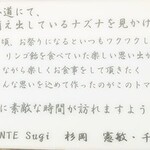 小道にて、
萌え出しているナズナを見かけ
頃、お祭りになるといつもワクワクし
リンゴ飴を食べていた楽しい思い出が
ながら楽しくお食事をして頂きたく
んな思いを込めて作ったのがこのトマ
に素敵な時間が訪れますよう
NTE Sugi 杉岡 憲敏・千